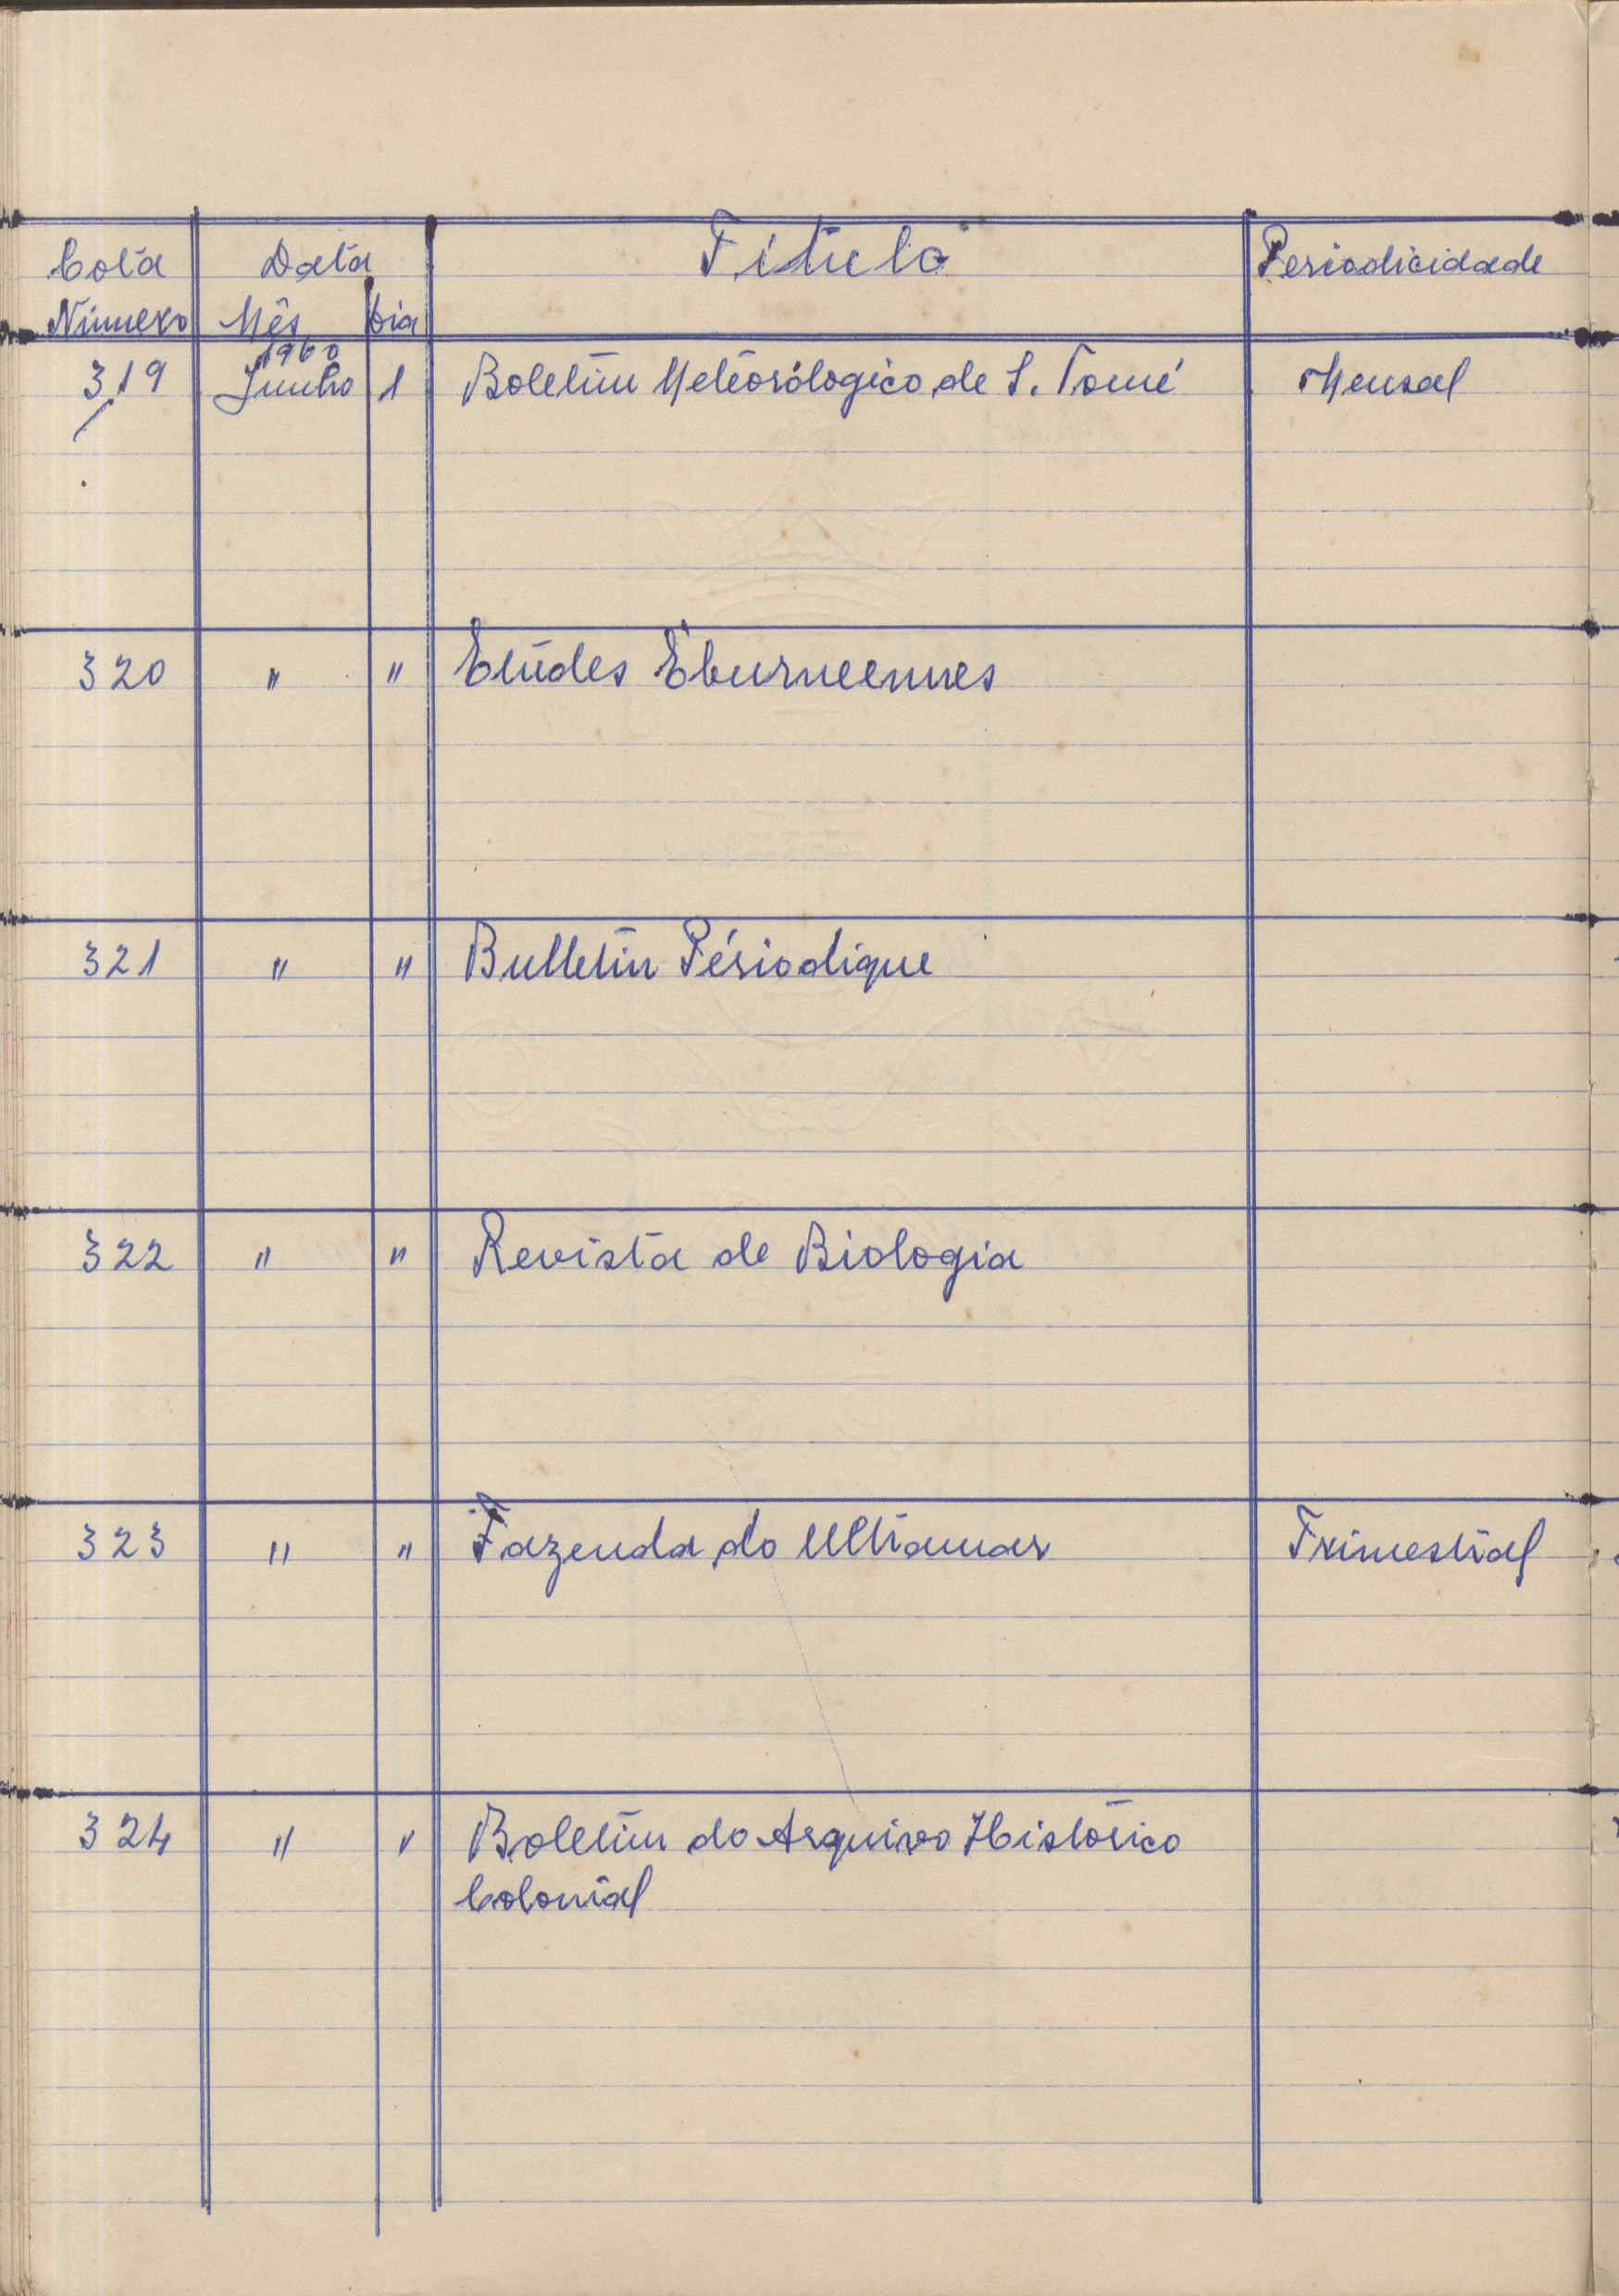 Cota Data Título Periodicidade
Número Mês Dia
1960
319 Junho 1 Boletim Meteorólogico de S. Tomé Mensal
320 " " Etudes Éburneennes
321 " " Bulletin Périodique
322 " " Revista de Biologia
323 " " Fazenda do Ultramar Trimestral
324 " " Boletim do Arquivo Histórico
Colonial